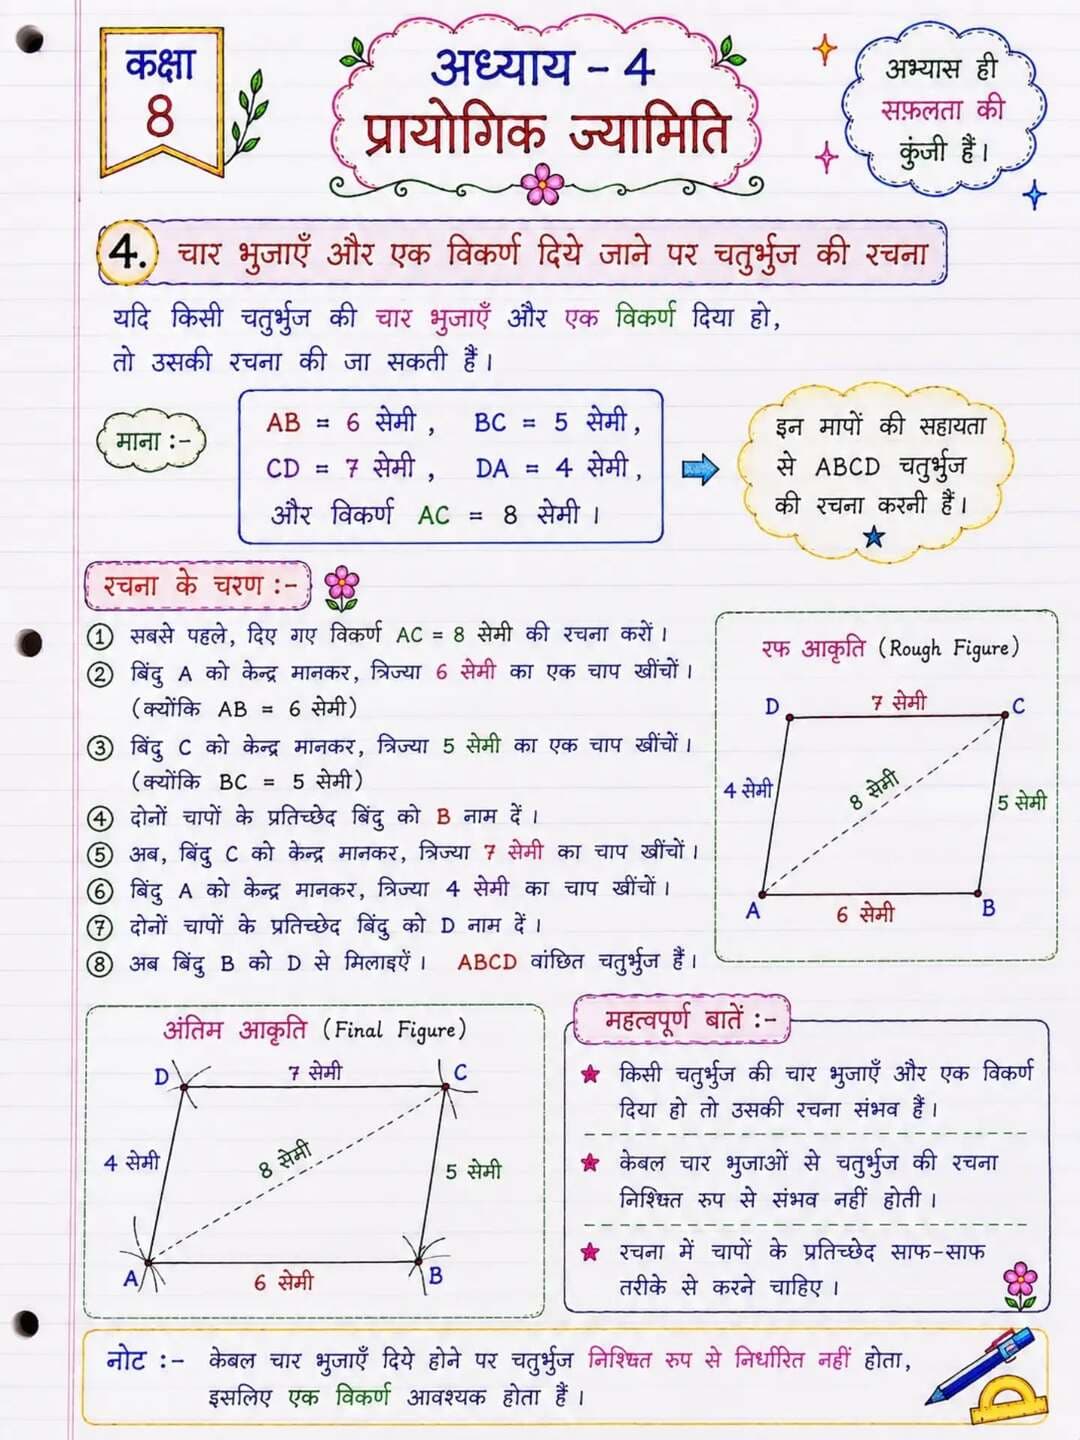 कक्षा
8
अध्याय – 4
प्रायोगिक ज्यामिति
अभ्यास ही
सफ़लता की
कुंजी हैं।
4. चार भुजाएँ और एक विकर्ण दिये जाने पर चतुर्भुज की रचना
यदि किसी चतुर्भुज की चार भुजाएँ और एक विकर्ण दिया हो,
तो उसकी रचना की जा सकती हैं।
माना :-
AB = 6 सेमी , BC = 5 सेमी ,
CD = 7 सेमी , DA = 4 सेमी ,
और विकर्ण AC = 8 सेमी ।
इन मापों की सहायता
से ABCD चतुर्भुज
की रचना करनी हैं।
रचना के चरण :-
① सबसे पहले, दिए गए विकर्ण AC = 8 सेमी की रचना करों ।
② बिंदु A को केन्द्र मानकर, त्रिज्या 6 सेमी का एक चाप खींचों ।
(क्योंकि AB = 6 सेमी)
③ बिंदु C को केन्द्र मानकर, त्रिज्या 5 सेमी का एक चाप खींचों ।
(क्योंकि BC = 5 सेमी)
④ दोनों चापों के प्रतिच्छेद बिंदु को B नाम दें ।
⑤ अब, बिंदु C को केन्द्र मानकर, त्रिज्या 7 सेमी का चाप खींचों ।
⑥ बिंदु A को केन्द्र मानकर, त्रिज्या 4 सेमी का चाप खींचों ।
⑦ दोनों चापों के प्रतिच्छेद बिंदु को D नाम दें ।
⑧ अब बिंदु B को D से मिलाइऐं । ABCD वांछित चतुर्भुज हैं ।
रफ आकृति (Rough Figure)
D 7 सेमी C
4 सेमी 8 सेमी 5 सेमी
A 6 सेमी B
अंतिम आकृति (Final Figure)
D 7 सेमी C
4 सेमी 8 सेमी 5 सेमी
A 6 सेमी B
महत्वपूर्ण बातें :-
किसी चतुर्भुज की चार भुजाएँ और एक विकर्ण
दिया हो तो उसकी रचना संभव हैं ।
केबल चार भुजाओं से चतुर्भुज की रचना
निश्चित रुप से संभव नहीं होती ।
रचना में चापों के प्रतिच्छेद साफ-साफ
तरीके से करने चाहिए ।
नोट :- केबल चार भुजाएँ दिये होने पर चतुर्भुज निश्चित रुप से निर्धारित नहीं होता,
इसलिए एक विकर्ण आवश्यक होता हैं ।